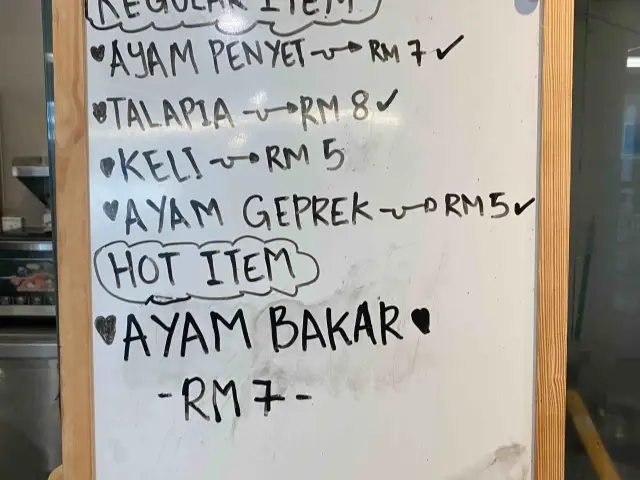 REGULAR ITEM
AYAM PENYET → RM 7 ✓
TALAPIA → RM 8 ✓
KELI → RM 5
AYAM GEPREK → RM 5 ✓
HOT ITEM
♥AYAM BAKAR♥
-RM 7-